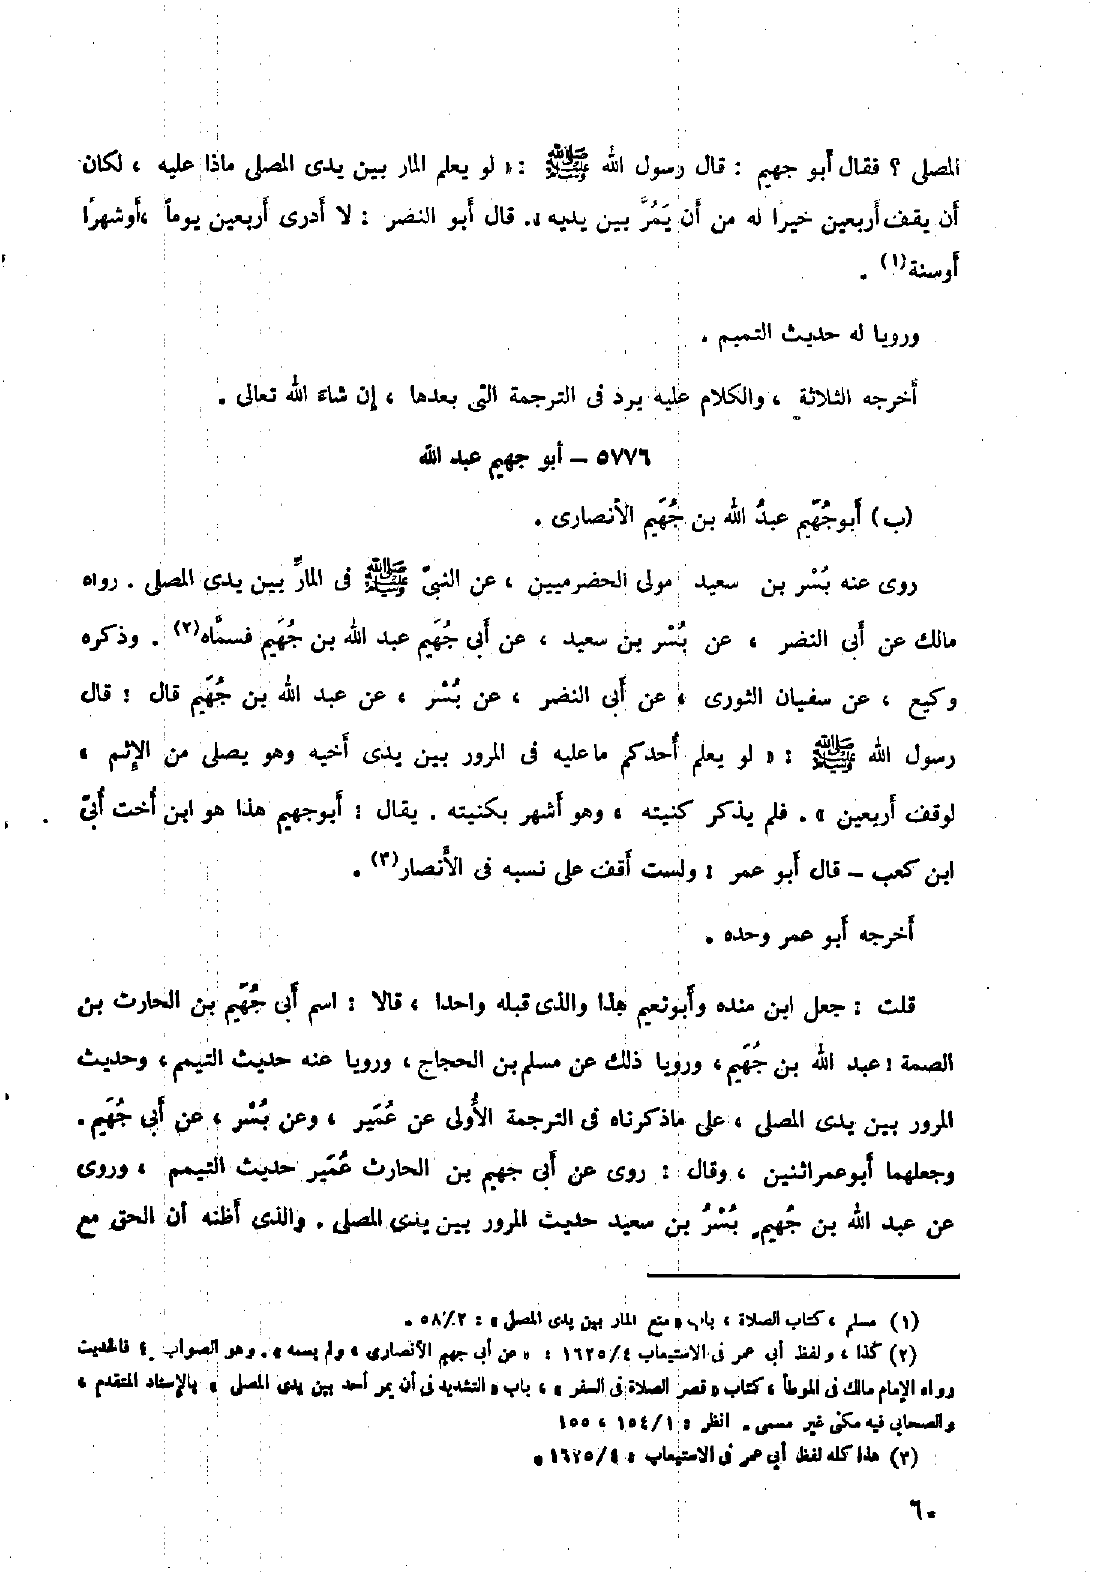 المصلى ؟ فقال أبو جهيم : قال رسول الله ﷺ : « لو يعلم المار بين يدى المصلى ماذا عليه ، لكان
أن يقف أربعين خيرًا له من أن يَمُرَّ بين يديه ». قال أبو النضر : لا أدرى أربعين يوماً ، أو شهرًا
أو سنة(١) .
ورويا له حديث التميم .
أخرجه الثلاثة ، والكلام عليه يرد فى الترجمة التى بعدها ، إن شاءَ الله تعالى .
٥٧٧٦ – أبو جهيم عبد الله
(ب) أبو جُهَيم عبدُ الله بن جُهَيم الأنصارى .
روى عنه بُسْر بن سعيد مولى الحضرميين ، عن النبىّ ﷺ فى المارِّ بين يدى المصلى . رواه
مالك عن أبى النضر ، عن بُسْر بن سعيد ، عن أبى جُهَيم عبد الله بن جُهَيم فسمَّاه(٢) . وذكره
وكيع ، عن سفيان الثورى ، عن أبى النضر ، عن بُسْر ، عن عبد الله بن جُهَيم قال : قال
رسول الله ﷺ : « لو يعلم أحدكم ما عليه فى المرور بين يدى أخيه وهو يصلى من الإثم ،
لوقف أربعين » . فلم يذكر كنيته ، وهو أشهر بكنيته . يقال : أبو جهيم هذا هو ابن أخت أُبىّ
ابن كعب – قال أبو عمر : ولست أقف على نسبه فى الأنصار(٣) .
أخرجه أبو عمر وحده .
قلت : جعل ابن منده وأبو نعيم هذا والذى قبله واحدا ، قالا : اسم أبى جُهَيم بن الحارث بن
الصمة : عبد الله بن جُهَيم ، ورويا ذلك عن مسلم بن الحجاج ، ورويا عنه حديث التيمم ، وحديث
المرور بين يدى المصلى ، على ما ذكرناه فى الترجمة الأُولى عن عُمَير ، وعن بُسْر ، عن أبى جُهَيم .
وجعلهما أبو عمر اثنين ، وقال : روى عن أبى جهيم بن الحارث عُمَير حديث التيمم ، وروى
عن عبد الله بن جُهيم بُسْرُ بن سعيد حديث المرور بين يدى المصلى . والذى أظنه أن الحق مع
(١) مسلم ، كتاب الصلاة ، باب « منع المار بين يدى المصلى » : ٥٨/٢ .
(٢) كذا ، ولفظ أبى عمر فى الاستيعاب ١٦٢٥/٤ : « عن أبى جهيم الأنصارى ، ولم يسمه » . وهو الصواب ، فالحديث
رواه الإمام مالك فى الموطأ ، كتاب « قصر الصلاة فى السفر » ، باب « التشديد فى أن يمر أحد بين يدى المصلى » بالإسناد المتقدم ،
والصحابى فيه مكنى غير مسمى . انظر : ١٥٤/١ ، ١٥٥
(٣) هذا كله لفظ أبى عمر فى الاستيعاب : ١٦٢٥/٤ .
٦٠